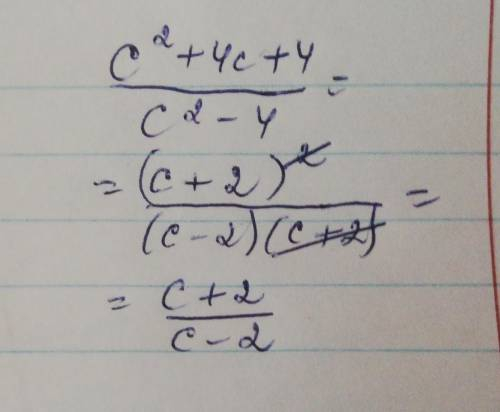 c² + 4c + 4
c² - 4 =
= (c + 2)²
(c - 2)(c + 2) =
= c + 2
c - 2